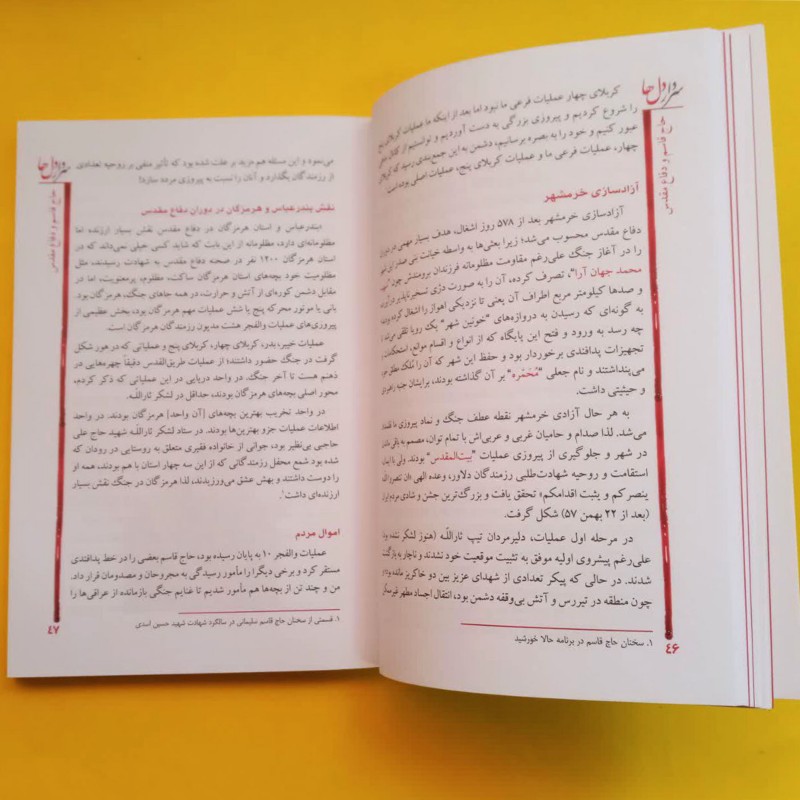 سردار دل‌ها
حاج قاسم و دفاع مقدس
کربلای چهار عملیات فرعی ما نبود اما بعد از اینکه ما عملیات کربلای پنج
را شروع کردیم و پیروزی بزرگی به دست آوردیم و توانستیم از کانال
عبور کنیم و خود را به بصره برسانیم، دشمن به این جمع‌بندی رسید که کربلای
چهار، عملیات فرعی ما و عملیات کربلای پنج، عملیات اصلی بوده است
آزادسازی خرمشهر
آزادسازی خرمشهر بعد از ۵۷۸ روز اشغال، هدف بسیار مهمی در دوران
دفاع مقدس محسوب می‌شد؛ زیرا بعثی‌ها به واسطه خیانت بنی صدر این شهر
را در آغاز جنگ علی‌رغم مقاومت مظلومانه فرزندان برومندش چون
محمد جهان آرا"، تصرف کرده، آن را به صورت دژی تسخیرناپذیر
و صدها کیلومتر مربع اطراف آن یعنی تا نزدیکی اهواز را اشغال کرده بودند
به گونه‌ای که رسیدن به دروازه‌های "خونین شهر" یک رویا تلقی می‌شد
چه رسد به ورود و فتح این پایگاه که از انواع و اقسام موانع، استحکامات
تجهیزات پدافندی برخوردار بود و حفظ این شهر که آن را مُلک مطلق
می‌پنداشتند و نام جعلی "مُحَمّره" بر آن گذاشته بودند، برایشان جنبه راهبردی
و حیثیتی داشت.
به هر حال آزادی خرمشهر نقطه عطف جنگ و نماد پیروزی ما قلمداد
می‌شد. لذا صدام و حامیان غربی و عربی‌اش با تمام توان، مصمم به باقی ماندن
در شهر و جلوگیری از پیروزی عملیات "بیت‌المقدس" بودند. ولی با ایمان
استقامت و روحیه شهادت‌طلبی رزمندگان دلاور، وعده الهی «ان تنصروالله
ینصرکم و یثبت اقدامکم» تحقق یافت و بزرگ‌ترین جشن و شادی مردم ایران
(بعد از ۲۲ بهمن ۵۷) شکل گرفت.
در مرحله اول عملیات، دلیرمردان تیپ ثارالله (هنوز لشکر نشده بود)
علی‌رغم پیشروی اولیه موفق به تثبیت موقعیت خود نشدند و ناچار به بازگشت
شدند. در حالی که پیکر تعدادی از شهدای عزیز بین دو خاکریز مانده بود
چون منطقه در تیررس و آتش بی‌وقفه دشمن بود، انتقال اجساد مطهر غیرممکن
۱. سخنان حاج قاسم در برنامه حالا خورشید
۴۶
سردار دل‌ها
حاج قاسم و دفاع مقدس
می‌نمود و این مسئله هم مزید بر علت شده بود که تأثیر منفی بر روحیه تعدادی
از رزمندگان بگذارد و آنان را نسبت به پیروزی مردد سازد!
نقش بندرعباس و هرمزگان در دوران دفاع مقدس
«بندرعباس و استان هرمزگان در دفاع مقدس نقش بسیار ارزنده اما
مظلومانه‌ای دارد، مظلومانه از این بابت که شاید کسی خیلی نمی‌داند که در
استان هرمزگان ۱۴۰۰ نفر در صحنه دفاع مقدس به شهادت رسیدند، مثل
مظلومیت خود بچه‌های استان هرمزگان ساکت، مظلوم، پرمعنویت، اما در
مقابل دشمن کوره‌ای از آتش و حرارت، در همه جاهای جنگ، هرمزگان بود.
بانی یا موتور محرکه پنج یا شش عملیات مهم هرمزگان بود، بخش عظیمی از
پیروزی‌های عملیات والفجر هشت مدیون رزمندگان هرمزگان است.
عملیات خیبر، بدر، کربلای چهار، کربلای پنج و عملیاتی که در هور شکل
گرفت در جنگ حضور داشتند؛ از عملیات طریق‌القدس دقیقاً چهره‌هایی در
ذهنم هست تا آخر جنگ. در واحد دریایی در این عملیاتی که ذکر کردم،
محور اصلی بچه‌های هرمزگان بودند، حداقل در لشکر ثارالله.
در واحد تخریب بهترین بچه‌های [آن واحد] هرمزگان بودند. در واحد
اطلاعات عملیات جزو بهترین‌ها بودند. در ستاد لشکر ثارالله شهید حاج علی
حاجبی بی‌نظیر بود، جوانی از خانواده فقیری متعلق به روستایی در رودان که
شده بود شمع محفل رزمندگانی که از این سه چهار استان با هم بودند، همه او
را دوست داشتند و بهش عشق می‌ورزیدند، لذا هرمزگان در جنگ نقش بسیار
ارزنده‌ای داشت¹.
اموال مردم
عملیات والفجر ۱۰ به پایان رسیده بود، حاج قاسم بعضی را در خط پدافندی
مستقر کرد و برخی دیگر را مأمور رسیدگی به مجروحان و مصدومان قرار داد.
من و چند تن از بچه‌ها هم مأمور شدیم تا غنایم جنگی بازمانده از عراقی‌ها را
۱. قسمتی از سخنان حاج قاسم سلیمانی در سالگرد شهادت شهید حسین اسدی
۴۷